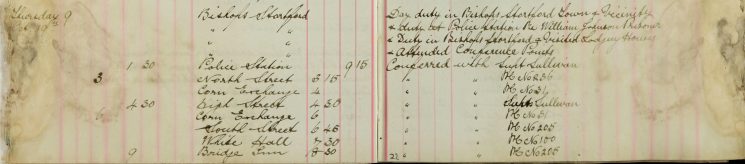 Thursday 9 Bishops Stortford Day duty in Bishops Stortford Town & Vicinity
" " & duty at Police Station Re William Johnson Prisoner
" " & Duty in Bishops Stortford & Visited Lodging Houses
" " & Attended Conference Points
1 30 Police Station 9 15 Conferred with Supt Sullivan
3 North Street 3 15 " " PC No 236
Corn Exchange 4 " " PC No 31
4 30 High Street 4 30 " " Supt Sullivan
6 Corn Exchange 6 " " PC No 31
South Street 6 45 " " PC No 205
White Hall 7 30 " " PC No 180
9 Bridge Inn 8 30 " " PC No 205